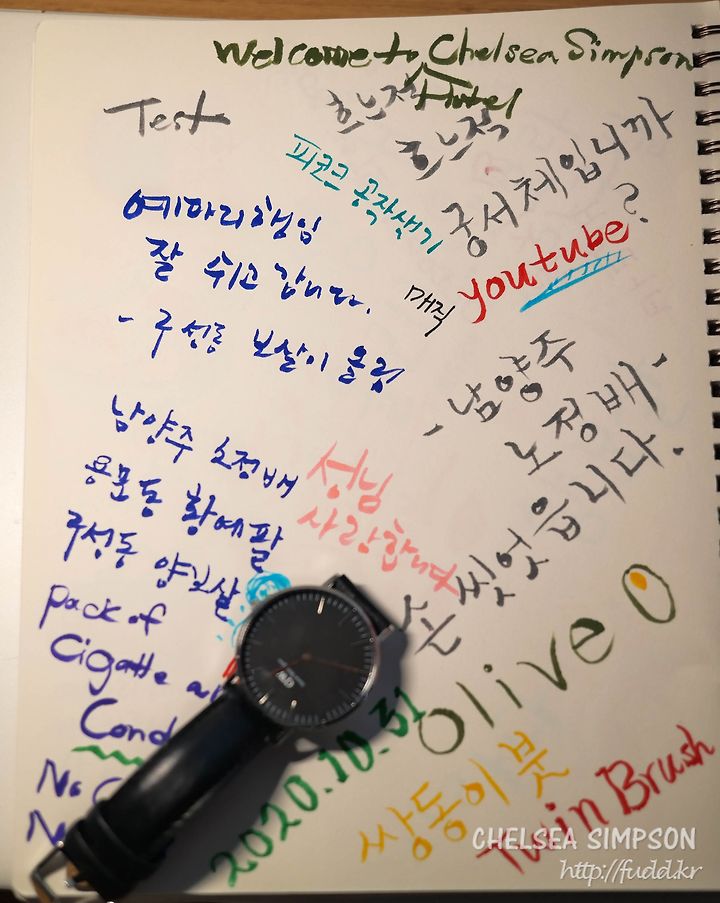 Welcome to Chelsea Simpson
Hotel
Test
흐느적
흐느적
피코크 공작색기
궁서체입니까
?
예마리행님
잘 쉬고 갑니다.
- 구성동 보살이 올림
매직
youtube
- 남양주
노정배 -
손 씻엇읍니다.
남양주 노정배
용문동 황예팔
구성동 양보살
성님
사랑합니다
pack of
Cigatte
Cond
No
2020.10.31
Olive O
쌍동이 붓
Twin Brush
CHELSEA SIMPSON
http://fudd.kr